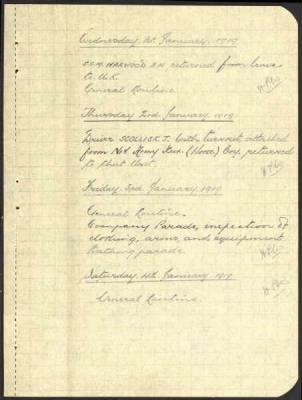 Wednesday 1st January 1919
S.S.M. HARWOOD B.H. returned from leave
to U.K.
General Routine
Thursday 2nd January 1919
Driver with turnout attached
from No1 Army Aux. (Horse) Coy. returned
to that Unit.
Friday 3rd January 1919
General Routine
Company Parade, inspection of
clothing, arms, and equipment
Bathing parade
Saturday 4th January 1919
General Routine